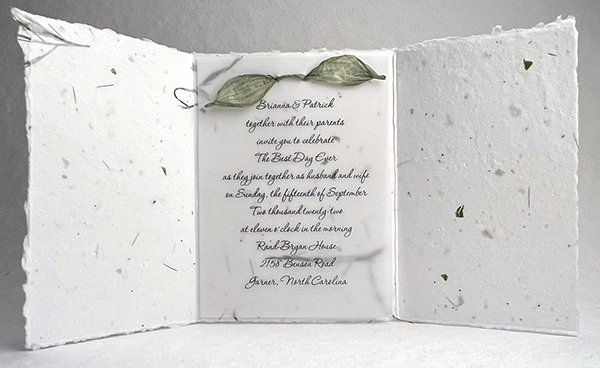 Brianna & Patrick
together with their parents
invite you to celebrate
The Best Day Ever
as they join together as husband and wife
on Sunday, the fifteenth of September
Two thousand twenty-two
at eleven o'clock in the morning
Rand Bryan House
2158 Benson Road
Garner, North Carolina